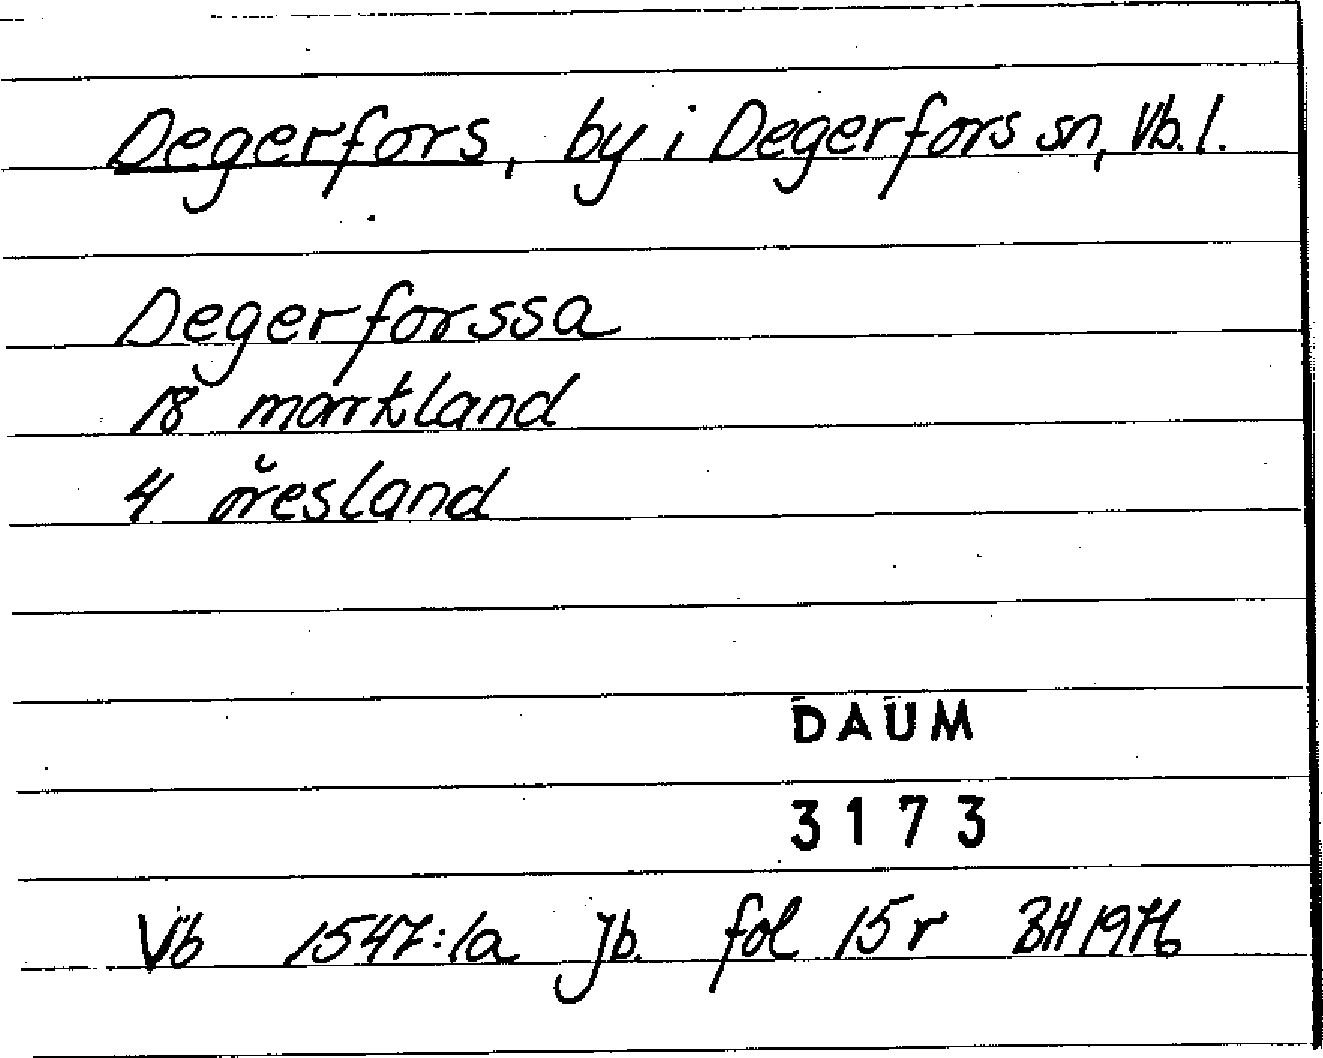 Degerfors, by i Degerfors sn, Vb. l.
Degerforssa
18 markland
4 öresland
DAUM
3173
Vb 1547:1a Jb. fol 15r BH 1976